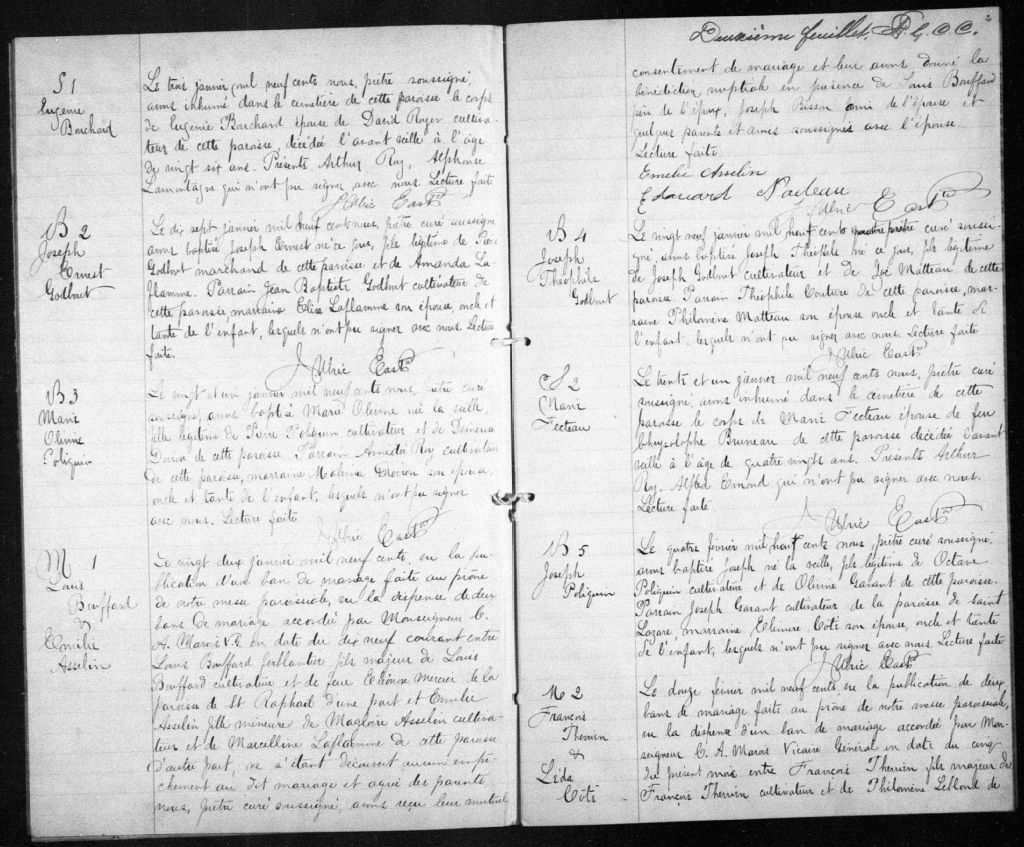 S 1
Eugénie
Bouchard
Le trois janvier mil neuf cents nous, prêtre soussigné,
avons inhumé dans le cimetière de cette paroisse le corps
de Eugénie Bouchard épouse de David Royer cultiva-
teur de cette paroisse, décédée l'avant veille à l'âge
de vingt six ans. Présents Arthur Roy, Alphonse
Lamontagne qui n'ont pu signer avec nous. Lecture faite
J Ulric East ptre
B 2
Joseph
Ernest
Godbout
Le dix sept janvier mil neuf cent nous, prêtre curé soussigné
avons baptisé Joseph Ernest né ce jour, fils légitime de
Godbout marchand de cette paroisse et de Amanda La
flamme. Parrain Jean Baptiste Godbout cultivateur de
cette paroisse marraine Eliza Laflamme son épouse, oncle et
tante de l'enfant, lesquels n'ont pu signer avec nous. Lecture
faite.
J Ulric East ptre
B 3
Marie
Olivine
Poliquin
Le vingt et un janvier mil neuf cents nous, prêtre curé
soussigné, avons baptisé Marie Olivine née la veille,
fille légitime de Pierre Poliquin cultivateur et de
de cette paroisse. Parrain Amédée Roy cultivateur
de cette paroisse, marraine son épouse,
oncle et tante de l'enfant, lesquels n'ont pu signer
avec nous. Lecture faite
J Ulric East ptre
M 1
Louis
Bouffard
&
Emilie
Asselin
Le vingt deux janvier mil neuf cents, vu la pu-
blication d'un ban de mariage faite au prône
de notre messe paroissiale, vu la dispense de deux
bans de mariage accordée par Monseigneur C.
A. Marois V.G. en date du dix neuf courant entre
Louis Bouffard ferblantier fils majeur de Louis
Bouffard cultivateur et de feue Eléonore Mercier de la
paroisse de St Raphael d'une part et Emilie
Asselin fille mineure de Magloire Asselin cultiva-
teur et de Marcelline Laflamme de cette paroisse
d'autre part, ne s'étant découvert aucun empê-
chement au dit mariage et agréé des parents,
nous, prêtre curé soussigné, avons reçu leur mutuel
Deuxième feuillet. 2
consentement de mariage et leur avons donné la
bénédiction nuptiale en présence de Louis Bouffard
père de l'époux, Joseph Bisson ami de l'épouse et
quelques parents et amis soussignés avec l'épouse
Lecture faite
Emelie Asselin
Edouard Nadeau
J Ulric East ptre
B 4
Joseph
Théophile
Godbout
Le vingt neuf janvier mil neuf cents nous prêtre curé soussi-
gné, avons baptisé Joseph Théophile né ce jour, fils légitime
de Joseph Godbout cultivateur et de Zoé Matteau de cette
paroisse. Parrain Théophile Couture de cette paroisse, mar-
raine Philomène Matteau son épouse oncle et tante de
l'enfant lesquels n'ont pu signer avec nous. Lecture faite
J Ulric East ptre
S 2
Marie
Fecteau
Le trente et un janvier mil neuf cents nous, prêtre curé
soussigné, avons inhumé dans le cimetière de cette
paroisse le corps de Marie Fecteau épouse de feu
Chrysolophe Bruneau de cette paroisse décédée l'avant
veille à l'âge de quatre vingts ans. Présents Arthur
Roy, Alfred Emond qui n'ont pu signer avec nous.
Lecture faite
J Ulric East ptre
B 5
Joseph
Poliquin
Le quatre février mil neuf cents nous, prêtre curé soussigné,
avons baptisé Joseph né la veille, fils légitime de Octave
Poliquin cultivateur et de Olivine Garant de cette paroisse.
Parrain Joseph Garant cultivateur de la paroisse de Saint
Lazare, marraine Elmire Coté son épouse, oncle et tante
de l'enfant, lesquels n'ont pu signer avec nous. Lecture faite
J Ulric East ptre
M 2
François
Therrien
&
Léda
Coté
Le douze février mil neuf cents vu la publication de deux
bans de mariage faite au prône de notre messe paroissiale,
vu la dispense d'un ban de mariage accordée par Mon-
seigneur C. A. Marois Vicaire Général en date du cinq
du présent mois entre François Therrien fils majeur de
François Therrien cultivateur et de Philomène Leblond de